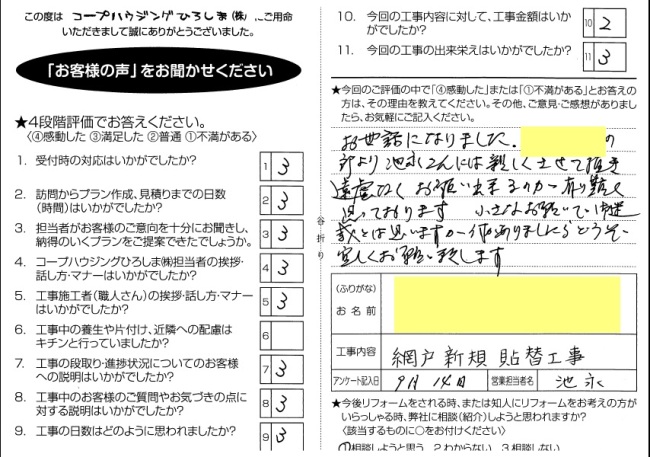 この度は コープハウジングひろしま(株) にご用命
いただきまして誠にありがとうございました。
「お客様の声」をお聞かせください
★4段階評価でお答えください。
〈④感動した ③満足した ②普通 ①不満がある〉
1. 受付時の対応はいかがでしたか? 1 3
2. 訪問からプラン作成、見積りまでの日数
(時間)はいかがでしたか? 2 3
3. 担当者がお客様のご意向を十分にお聞きし、
納得のいくプランをご提案できたでしょうか。 3 3
4. コープハウジングひろしま㈱担当者の挨拶・
話し方・マナーはいかがでしたか? 4 3
5. 工事施工者(職人さん)の挨拶・話し方・マナー
はいかがでしたか? 5 3
6. 工事中の養生や片付け、近隣への配慮は
キチンと行っていましたか? 6
7. 工事の段取り・進捗状況についてのお客様
への説明はいかがでしたか? 7 3
8. 工事中のお客様のご質問やお気づきの点に
対する説明はいかがでしたか? 8 3
9. 工事の日数はどのように思われましたか? 9 3
谷折り
10. 今回の工事内容に対して、工事金額はいか
がでしたか? 10 2
11. 今回の工事の出来栄えはいかがでしたか? 11 3
★今回のご評価の中で「④感動した」または「①不満がある」とお答えの
方は、その理由を教えてください。その他、ご意見・ご感想がありました
ら、お気軽にご記入ください。
お世話になりました. の
節より池永さんには親しくさせて頂き
遠慮なくお願い出来るのが有り難く
思っております 小さなお願いで御迷
惑とは思いますが何かありましたらどうぞ
宜しくお願い致します
(ふりがな)
お名前
工事内容 網戸新規貼替工事
アンケート記入日 9月14日 営業担当者名 池永
★今後リフォームをされる時、または知人にリフォームをお考えの方が
いらっしゃる時、弊社に相談(紹介)しようと思われますか?
〈該当するものに○をお付けください〉
①相談しようと思う 2 わからない 3 相談しない